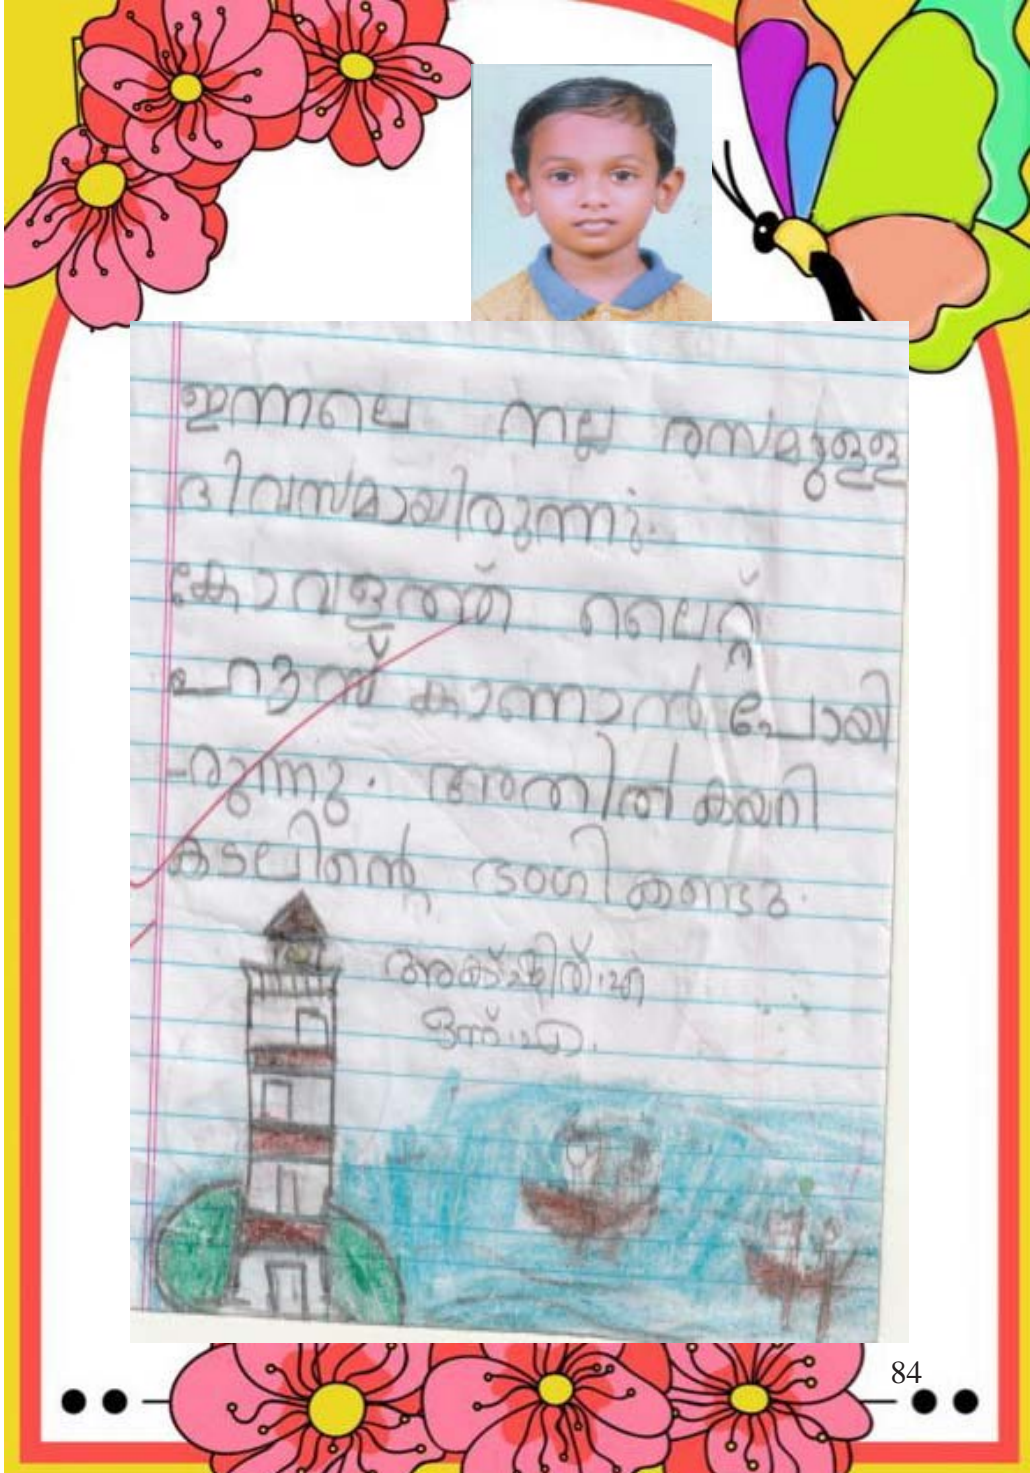 ഇന്നലെ നല്ല രസമുള്ള
ദിവസമായിരുന്നു.
കോവളത്ത് ലൈറ്റ്
ഹൗസ് കാണാൻ പോയി
-രുന്നു. അതിൽ കയറി
കടലിന്റെ ഭംഗി കണ്ടു.
അക്ഷിത്.എ
ഒന്ന്.എ.
84